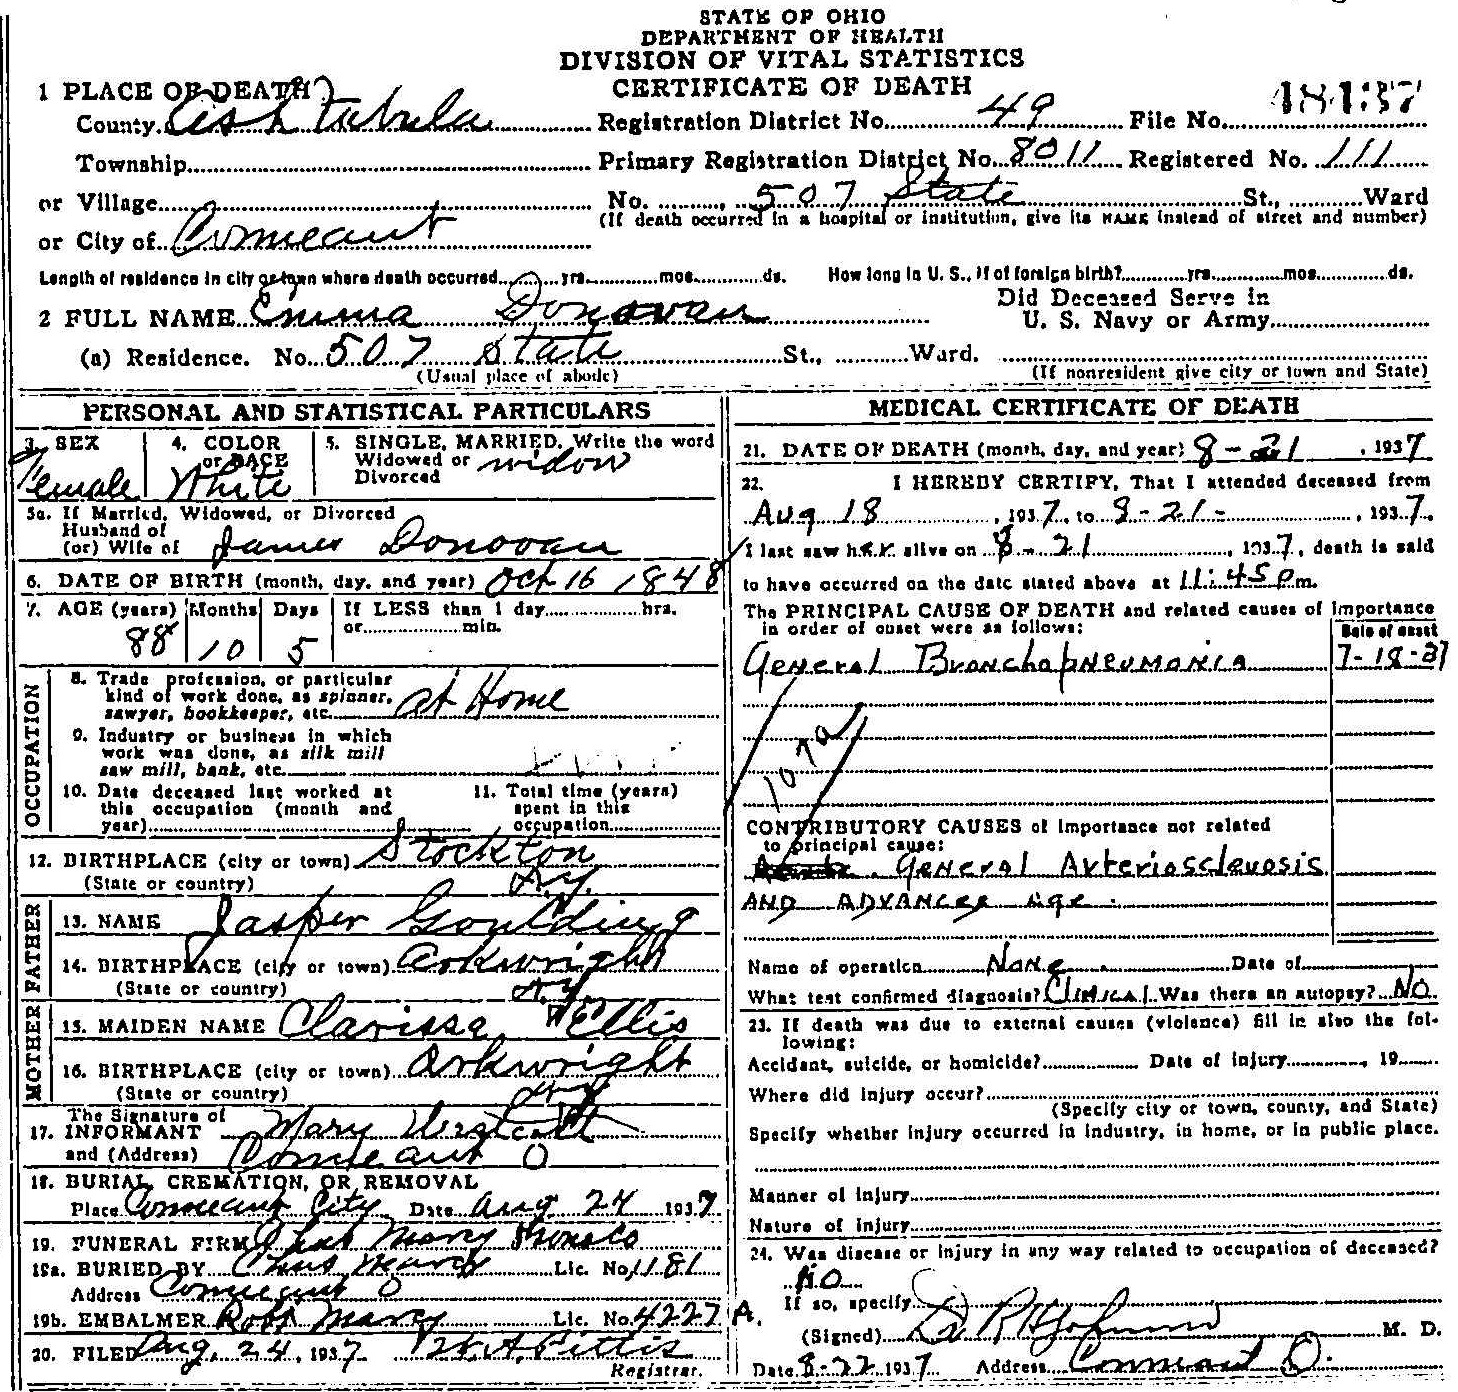 STATE OF OHIO
DEPARTMENT OF HEALTH
DIVISION OF VITAL STATISTICS
CERTIFICATE OF DEATH
1 PLACE OF DEATH
County Ashtabula Registration District No. 49 File No. 48137
Township Primary Registration District No. 8011 Registered No. 111
or Village No. 507 State St., Ward
(If death occurred in a hospital or institution, give its NAME instead of street and number)
or City of Conneaut
Length of residence in city or town where death occurred yrs. mos. ds. How long in U. S., if of foreign birth? yrs. mos. ds.
2 FULL NAME Emma Donovan Did Deceased Serve in U. S. Navy or Army
(a) Residence. No. 507 State St., Ward.
(Usual place of abode) (If nonresident give city or town and State)
PERSONAL AND STATISTICAL PARTICULARS
3. SEX Female 4. COLOR or RACE White 5. SINGLE, MARRIED, Widowed or Divorced Write the word widow
5a. If Married, Widowed, or Divorced
Husband of
(or) Wife of James Donovan
6. DATE OF BIRTH (month, day, and year) Oct 16 1848
7. AGE (years) 88 Months 10 Days 5 If LESS than 1 day hrs. or min.
OCCUPATION
8. Trade profession, or particular
kind of work done, as spinner,
sawyer, bookkeeper, etc. at Home
9. Industry or business in which
work was done, as silk mill
saw mill, bank, etc.
10. Date deceased last worked at this occupation (month and year) 11. Total time (years) spent in this occupation
12. BIRTHPLACE (city or town) Stockton
(State or country) N.Y.
FATHER
13. NAME Jasper Goulding
14. BIRTHPLACE (city or town) Arkwright
(State or country) N.Y.
MOTHER
15. MAIDEN NAME Clarissa Ellis
16. BIRTHPLACE (city or town) Arkwright
(State or country) N.Y.
17. The Signature of INFORMANT Mary
and (Address) Conneaut O
18. BURIAL, CREMATION, OR REMOVAL
Place Conneaut City Date Aug 24 1937
19. FUNERAL FIRM Chas Marcy
19a. BURIED BY Chas Marcy Lic. No. 1181
Address Conneaut O
19b. EMBALMER Robt Marcy Lic. No. 4227 A.
20. FILED Aug. 24, 1937 W. A. Pittis
Registrar.
MEDICAL CERTIFICATE OF DEATH
21. DATE OF DEATH (month, day, and year) 8-21, 1937
22. I HEREBY CERTIFY, That I attended deceased from
Aug 18, 1937, to 8-21-, 1937.
I last saw her alive on 8-21, 1937, death is said
to have occurred on the date stated above at 11:45 p m.
The PRINCIPAL CAUSE OF DEATH and related causes of importance
in order of onset were as follows: Date of onset
General Bronchopneumonia 7-18-37
107a
CONTRIBUTORY CAUSES of importance not related
to principal cause:
General Arteriosclerosis
AND ADVANCED Age.
Name of operation None Date of
What test confirmed diagnosis? Clinical Was there an autopsy? No
23. If death was due to external causes (violence) fill in also the fol-
lowing:
Accident, suicide, or homicide? Date of injury , 19
Where did injury occur?
(Specify city or town, county, and State)
Specify whether injury occurred in industry, in home, or in public place.
Manner of injury
Nature of injury
24. Was disease or injury in any way related to occupation of deceased?
No
If so, specify
(Signed) Dr M. D.
Date 8-22 1937 Address Conneaut O.